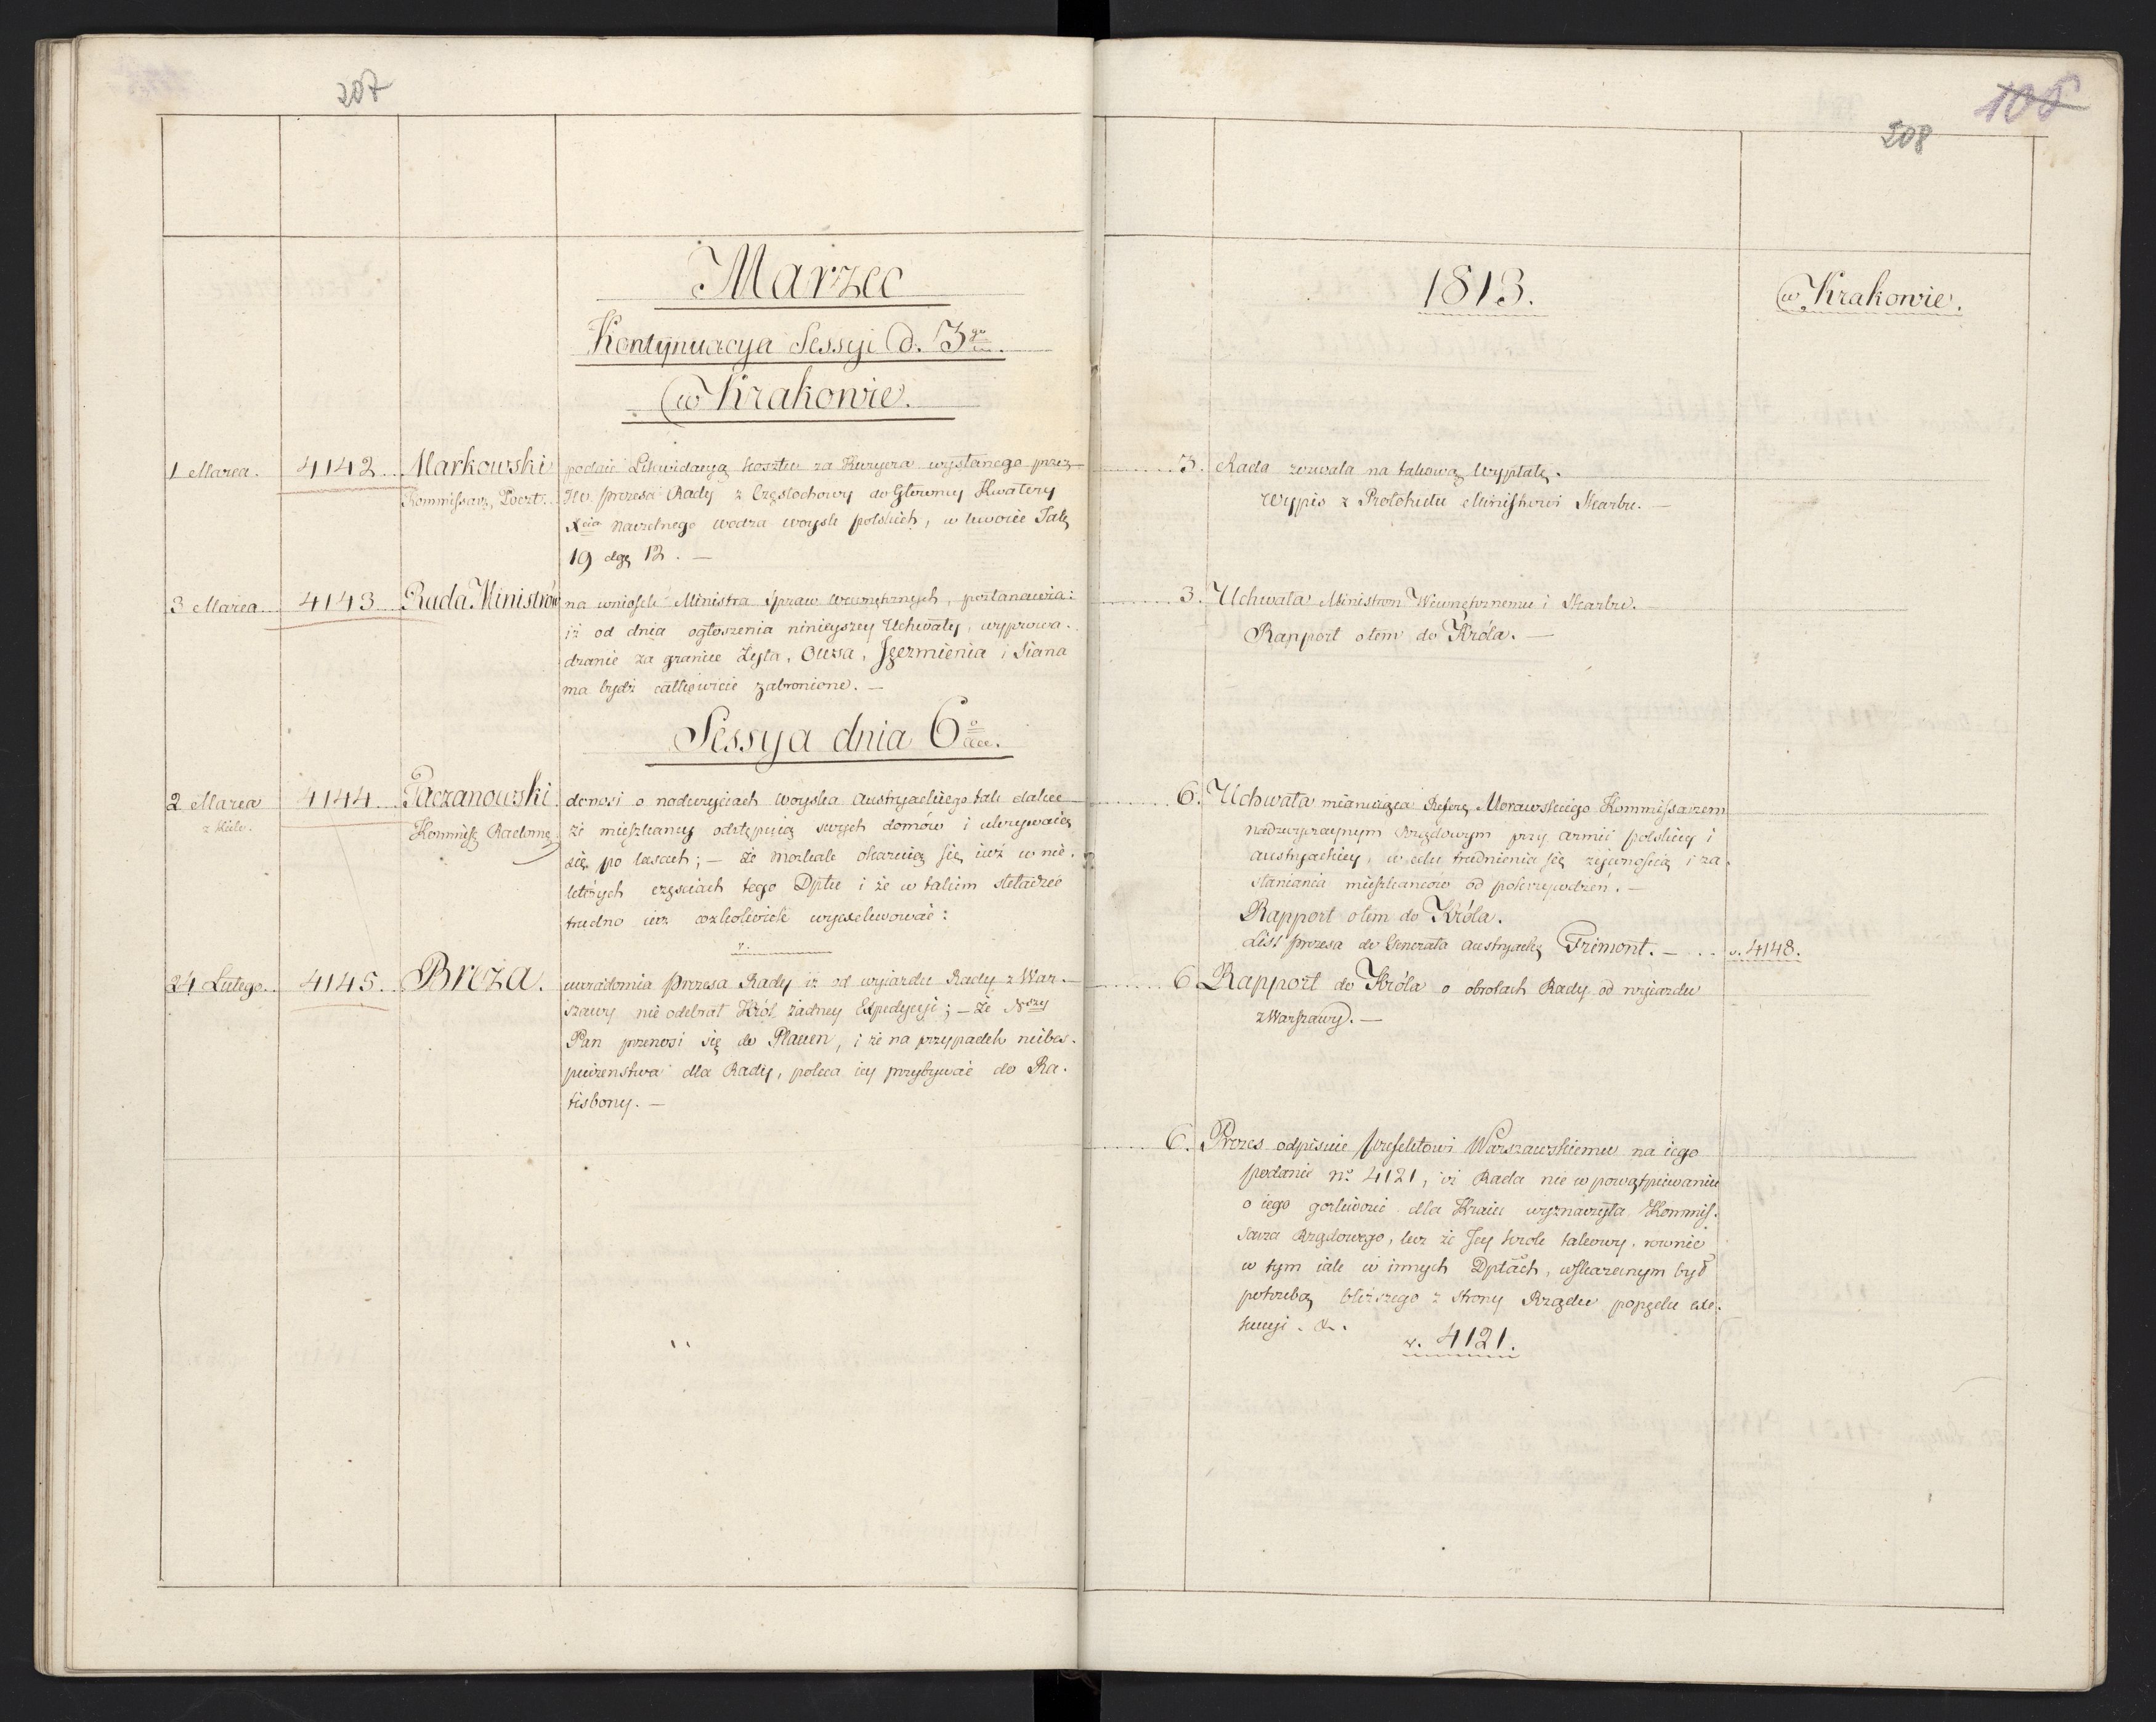 207
Marzec
Kontynuacya Sessyi d. 3go
w Krakowie.
1 Marca. 4142. Markowski podaie Likwidacyą kosztu za Kuryera wysłanego przez
Kommissarz Poczt. JW. Prezesa Rady z Częstochowy do Główney Kwatery
Xcia Naczelnego wodza woysk polskich, w kwocie Tal.
19 dgr 12. —
3 Marca 4143 Rada Ministrów na wniosek Ministra Spraw wewnętrznych, postanawia:
iż od dnia ogłoszenia ninieyszey Uchwały, wyprowa-
dzanie za granice Żyta, Owsa, Jęczmienia i Siana
ma bydź całkowicie zabronione. —
Sessya dnia 6o
2 Marca 4144 Paczanowski donosi o nadużyciach woyska Austryackiego tak dalece
z Kielc. Kommiss. Radoms. że mieszkańcy odstępuią swych domów i ukrywaią
się po lasach; — że moskale okazuią się iuż w nie-
których częsciach tego Dptu i że w takim składzie
trudno iuż cożkolwiek wyexekwować:
24 Lutego. 4145. Breza. uwiadomia Prezesa Rady iż od wyiazdu Rady z War-
szawy nie odebrał Król żadney Expedycyi; — że Nszy
Pan przenosi się do Plauen, i że na przypadek niebes-
pieczenstwa dla Rady, poleca iey przybywać do Ra-
tisbony. —
108
208
1813. w Krakowie.
3. Rada zezwala na takową wypłatę.
Wypis z Protokułu Ministrowi Skarbu. —
3. Uchwała Ministrom Wewnętrznemu i Skarbu. —
Rapport o tem do Króla. —
6. Uchwała mianuiąca Prefera Morawskiego Kommissarzem
nadzwyczaynym Rządowym przy armii polskiey i
austryackiey, w celu trudnienia się żywnością i za-
słaniania mieszkańców od pokrzywdzeń. —
Rapport o tem do Króla.
List Prezesa do Generała Austryack. Frimont. — .. v. 4148.
6 Rapport do Króla o obrotach Rady od wyiazdu
z Warszawy. —
6. Prezes odpisuie Prefektowi Warszawskiemu na iego
podanie No 4121, iż Rada nie w powątpiewaniu
o iego gorliwości dla Kraiu wyznaczyła Kommis-
sarza Rządowego, lecz że Jey krok takowy, rownie
w tym iak i w innych Dptach, wskazanym był
potrzebą bliższego z strony Rządu popędu exe-
kucyi. &.
v. 4121.